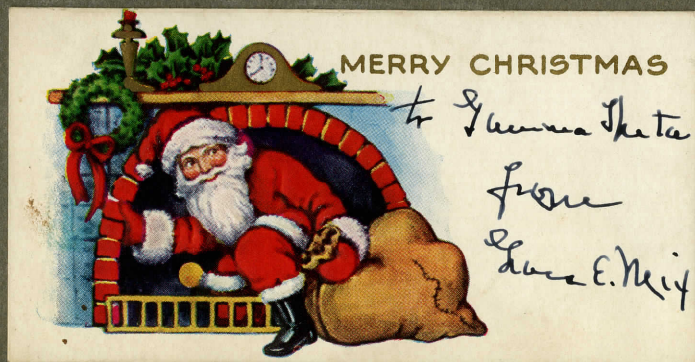 MERRY CHRISTMAS
to Gamma Theta
from
Grace E. Mix